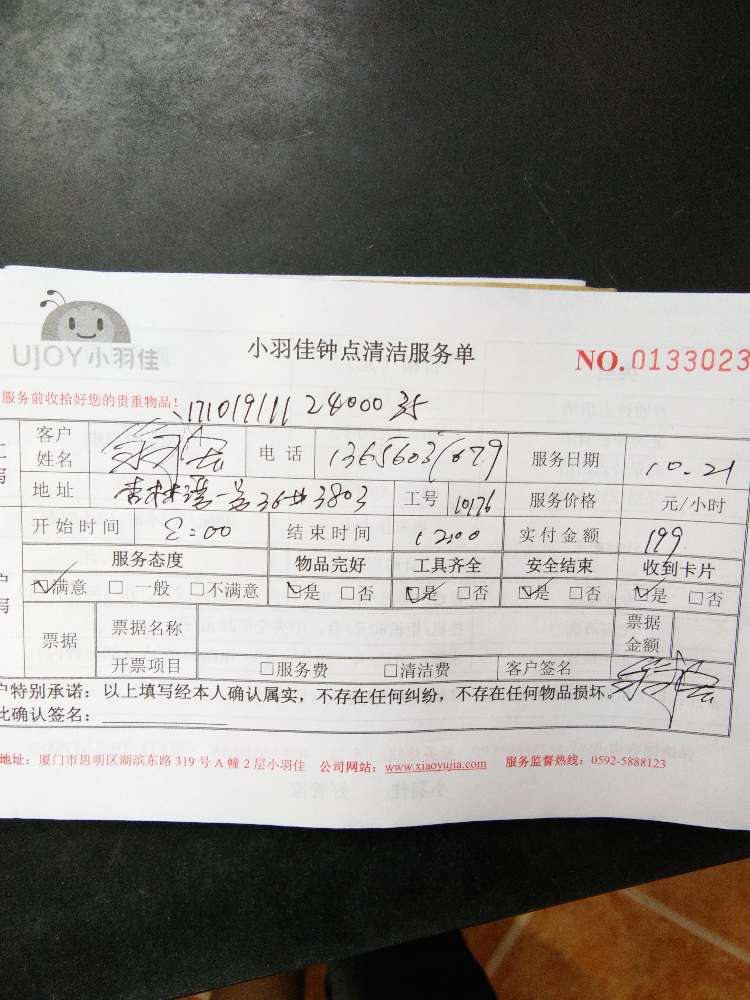 UJOY小羽佳
小羽佳钟点清洁服务单
NO.0133023
服务前收拾好您的贵重物品！
客户姓名 电话 服务日期 10.21
地址 3803 工号 10176 服务价格 元/小时
开始时间 结束时间 实付金额 199
服务态度 物品完好 工具齐全 安全结束 收到卡片
☑满意 □一般 □不满意 ☑是 □否 ☑是 □否 ☑是 □否 ☑是 □否
票据 票据名称 票据金额
开票项目 □服务费 □清洁费 客户签名
户特别承诺：以上填写经本人确认属实，不存在任何纠纷，不存在任何物品损坏。
此确认签名：
地址：厦门市思明区湖滨东路319号A幢2层小羽佳 公司网站：www.xiaoyujia.com 服务监督热线：0592-5888123